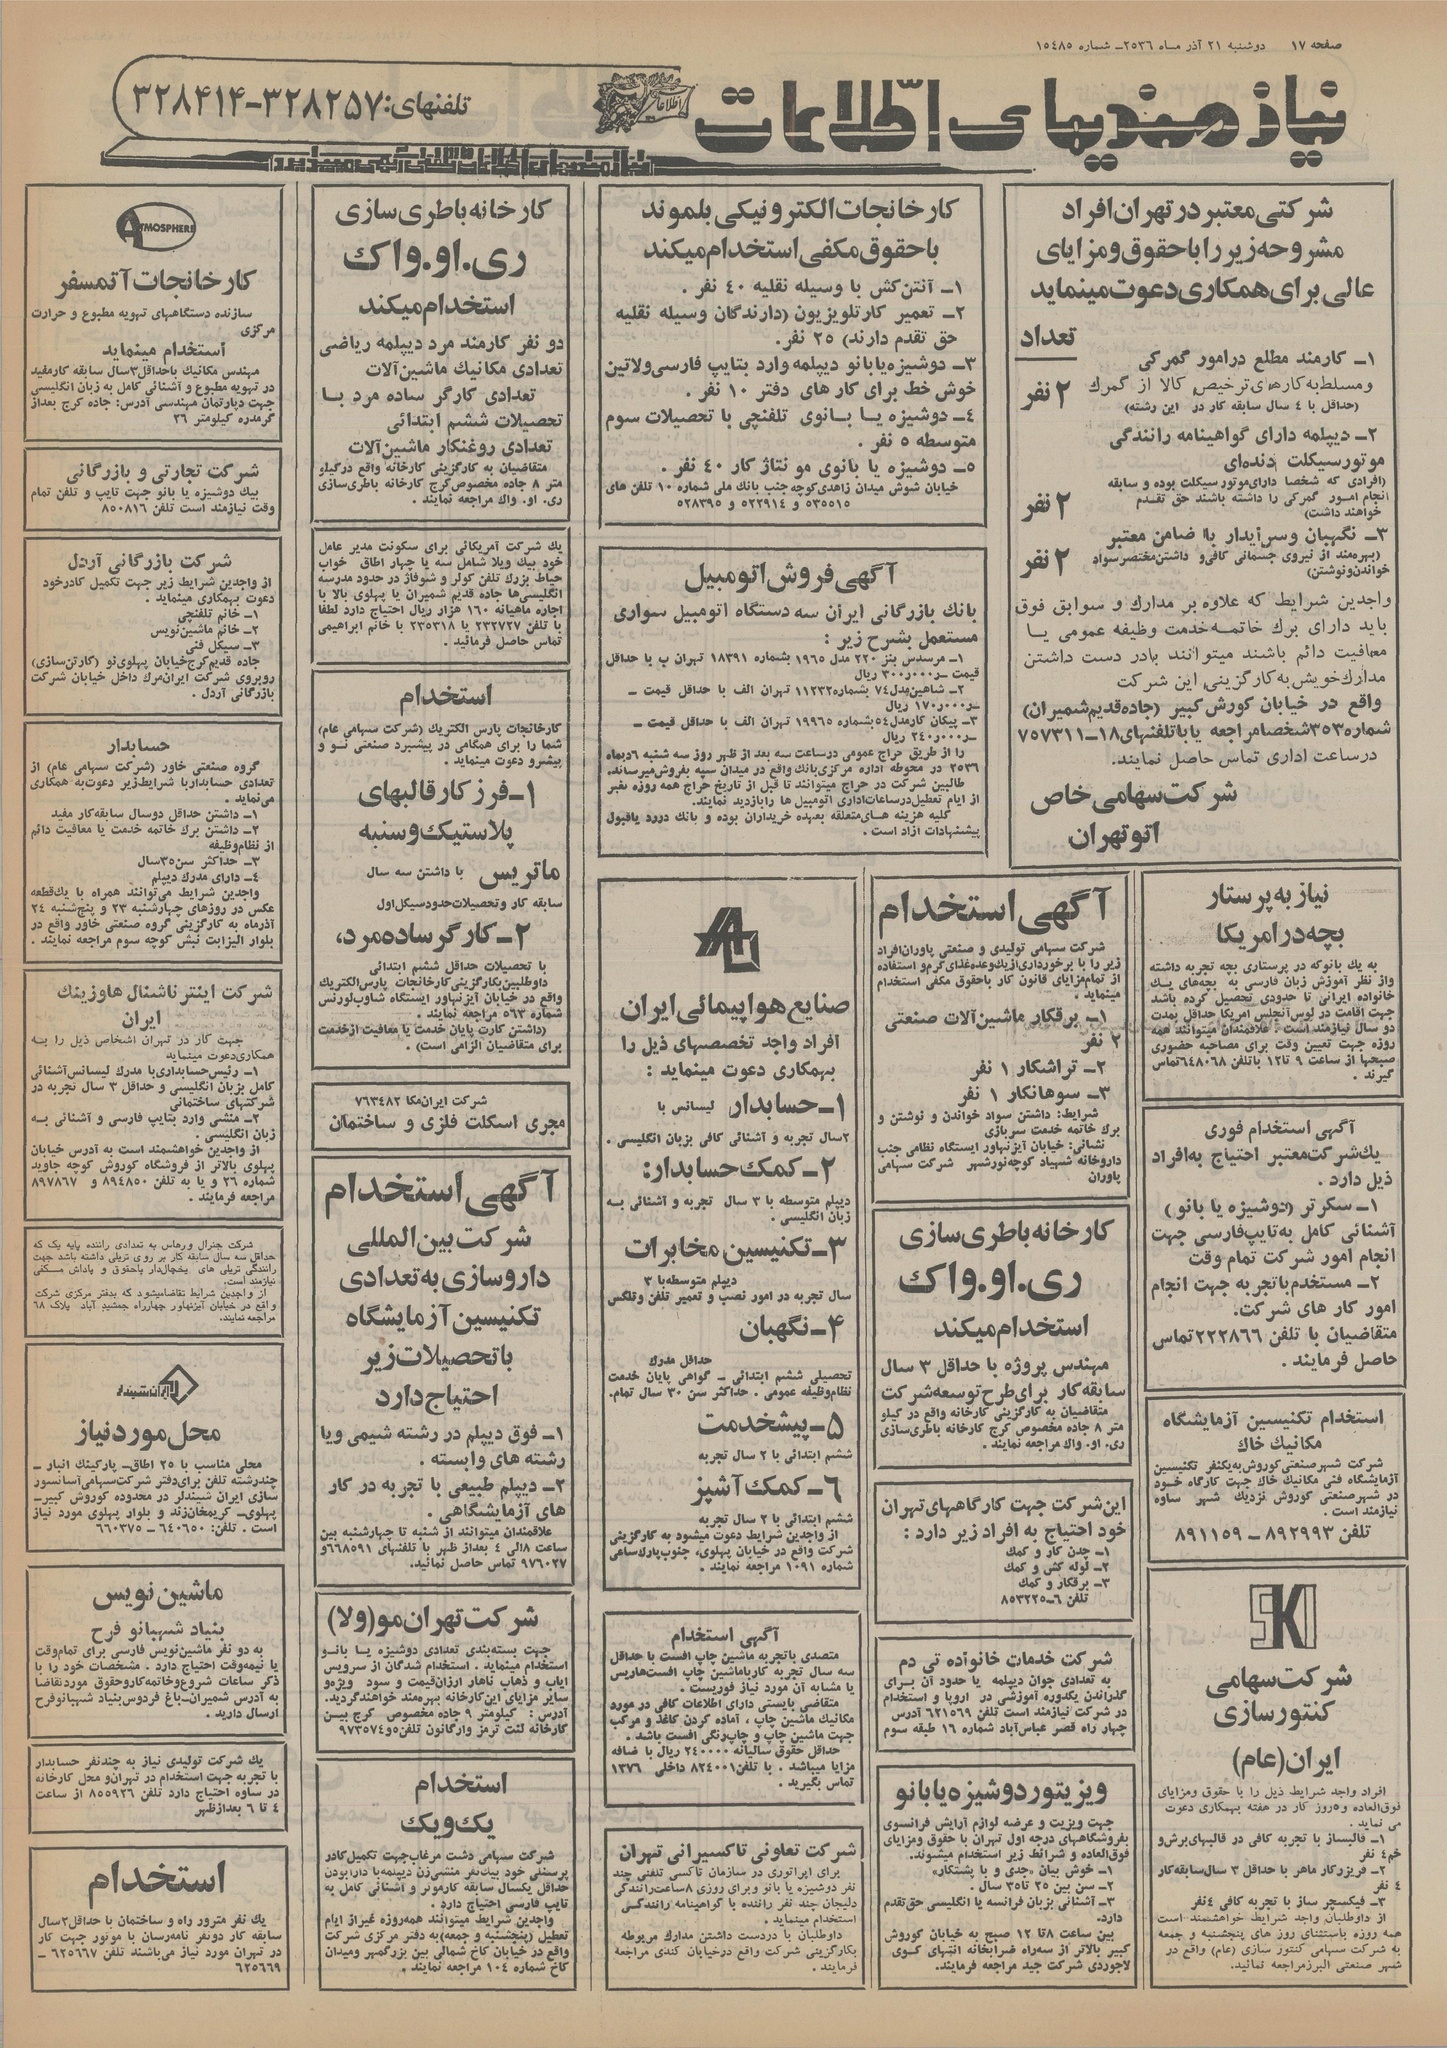 صفحه ۱۷ دوشنبه ۲۱ آذر ماه ۲۵۳۶ـ شماره ۱۵۴۸۵
نیازمندیهای اطلاعات
تلفنهای: ۳۲۸۲۵۷-۳۲۸۴۱۴
شرکتی معتبر در تهران افراد
مشروحه زیر را با حقوق و مزایای
عالی برای همکاری دعوت مینماید
تعداد
۱ـ کارمند مطلع در امور گمرکی
ومسلط به کارهای ترخیص کالا از گمرک
(حداقل با ۴ سال سابقه کار در این رشته)
۲ نفر
۲ـ دیپلمه دارای گواهینامه رانندگی
موتورسیکلت دنده‌ای
(افرادی که شخصا دارای موتورسیکلت بوده و سابقه
انجام امور گمرکی را داشته باشند حق تقدم
خواهند داشت)
۲ نفر
۳ـ نگهبان وسرایدار با ضامن معتبر
(بهره‌مند از نیروی جسمانی کافی و داشتن مختصر سواد
خواندن و نوشتن)
۲ نفر
واجدین شرایط که علاوه بر مدارک و سوابق فوق
باید دارای برگ خاتمه خدمت وظیفه عمومی یا
معافیت دائم باشند میتوانند با در دست داشتن
مدارک خویش به کارگزینی این شرکت
واقع در خیابان کورش کبیر (جاده قدیم شمیران)
شماره ۳۵۳ شخصا مراجعه یا با تلفنهای ۱۸ـ۷۵۷۳۱۱
در ساعت اداری تماس حاصل نمایند.
شرکت سهامی خاص
اتو تهران
کارخانجات الکترونیکی بلموند
با حقوق مکفی استخدام میکند
۱ـ آنتن کش با وسیله نقلیه ۴۰ نفر .
۲ـ تعمیر کار تلویزیون (دارندگان وسیله نقلیه
حق تقدم دارند) ۲۵ نفر.
۳ـ دوشیزه یا بانو دیپلمه وارد بتایپ فارسی ولاتین
خوش خط برای کار های دفتر ۱۰ نفر .
۴ـ دوشیزه یا بانوی تلفنچی با تحصیلات سوم
متوسطه ۵ نفر .
۵ـ دوشیزه یا بانوی مو نتاژ کار ۴۰ نفر .
خیابان شوش میدان زاهدی کوچه جنب بانک ملی شماره ۱۰ تلفن های
۵۳۵۵۱۵ و ۵۲۲۹۱۴ و ۵۲۸۳۹۵
آگهی فروش اتومبیل
بانک بازرگانی ایران سه دستگاه اتومبیل سواری
مستعمل بشرح زیر :
۱ـ مرسدس بنز ۲۲۰ مدل ۱۹۶۵ بشماره ۱۸۳۹۱ تهران ب با حداقل
قیمت ـر۳۰۰ر۰۰۰ ریال
۲ـ شاهین مدل ۷۴ بشماره ۱۱۲۳۲ تهران الف با حداقل قیمت ـ
ـر۱۷۰ر۰۰۰ ریال
۳ـ پیکان کار مدل ۵۴ بشماره ۱۹۹۶۵ تهران الف با حداقل قیمت ـ
ـر۲۴۰ر۰۰۰ ریال
را از طریق حراج عمومی در ساعت سه بعد از ظهر روز سه شنبه ۶ دیماه
۲۵۳۶ در محوطه اداره مرکزی بانک واقع در میدان سپه بفروش میرساند.
طالبین شرکت در حراج میتوانند تا قبل از تاریخ حراج همه روزه بغیر
از ایام تعطیل در ساعات اداری اتومبیل ها را بازدید نمایند.
کلیه هزینه های متعلقه بعهده خریداران بوده و بانک در رد یا قبول
پیشنهادات آزاد است .
کارخانه باطری سازی
ری.او.واک
استخدام میکند
دو نفر کارمند مرد دیپلمه ریاضی
تعدادی مکانیک ماشین آلات
تعدادی کارگر ساده مرد با
تحصیلات ششم ابتدائی
تعدادی روغنکار ماشین آلات
متقاضیان به کارگزینی کارخانه واقع در کیلو
متر ۸ جاده مخصوص کرج کارخانه باطری سازی
ری. او. واک مراجعه نمایند .
یک شرکت آمریکائی برای سکونت مدیر عامل
خود بیک ویلا شامل سه یا چهار اطاق خواب
حیاط بزرک تلفن کولر و شوفاژ در حدود مدرسه
انگلیسی‌ها جاده قدیم شمیران یا پهلوی بالا با
اجاره ماهیانه ۱۶۰ هزار ریال احتیاج دارد لطفا
با تلفن ۲۳۲۷۲۷ یا ۲۳۵۳۱۸ با خانم ابراهیمی
تماس حاصل فرمائید .
استخدام
کارخانجات پارس الکتریک (شرکت سهامی عام)
شما را برای همگامی در پیشبرد صنعتی نو و
پیشرو دعوت مینماید .
۱ـ فرز کار قالبهای
پلاستیک و سنبه
ماتریس با داشتن سه سال
سابقه کار و تحصیلات حدود سیکل اول
۲ـ کارگر ساده مرد،
با تحصیلات حداقل ششم ابتدائی
داوطلبین بکارگزینی کارخانجات پارس الکتریک
واقع در خیابان آیزنهاور ایستگاه شاوب لورنس
شماره ۵۶۳ مراجعه نمایند .
(داشتن کارت پایان خدمت یا معافیت از خدمت
برای متقاضیان الزامی است) .
شرکت ایران مکا ۷۶۳۴۸۲
مجری اسکلت فلزی و ساختمان
آگهی استخدام
شرکت بین المللی
داروسازی به تعدادی
تکنیسین آزمایشگاه
با تحصیلات زیر
احتیاج دارد
۱ـ فوق دیپلم در رشته شیمی ویا
رشته های وابسته .
۲ـ دیپلم طبیعی با تجربه در کار
های آزمایشگاهی .
علاقمندان میتوانند از شنبه تا چهارشنبه بین
ساعت ۸ الی ۴ بعد از ظهر با تلفنهای ۶۶۸۵۹۱ و
۹۷۶۰۲۷ تماس حاصل نمائید.
شرکت تهران مو (ولا)
جهت بسته‌بندی تعدادی دوشیزه یا بانو
استخدام مینماید . استخدام شدگان از سرویس
ایاب و ذهاب ناهار ارزان قیمت و سود ویژه و
سایر مزایای این کارخانه بهره‌مند خواهند گردید.
آدرس : کیلومتر ۹ جاده مخصوص کرج بین
کارخانه لنت ترمز وارگانون تلفن ۹۷۳۵۷۴۵
استخدام
یک و یک
شرکت سهامی دشت مرغاب جهت تکمیل کادر
پرسنلی خود بیک نفر منشی زن دیپلمه با دارا بودن
حداقل یکسال سابقه کار موثر و آشنائی کامل به
تایپ فارسی احتیاج دارد .
واجدین شرایط میتوانند همه روزه غیر از ایام
تعطیل (پنجشنبه و جمعه) به دفتر مرکزی شرکت
واقع در خیابان کاخ شمالی بین بزرگمهر و میدان
کاخ شماره ۱۰۴ مراجعه نمایند .
ATMOSPHERE
کارخانجات آتمسفر
سازنده دستگاههای تهویه مطبوع و حرارت
مرکزی
استخدام مینماید
مهندس مکانیک با حداقل ۳ سال سابقه کار مفید
در تهویه مطبوع و آشنائی کامل به زبان انگلیسی
جهت دپارتمان مهندسی آدرس: جاده کرج بعد از
گرمدره کیلومتر ۳۶
شرکت تجارتی و بازرگانی
بیک دوشیزه یا بانو جهت تایپ و تلفن تمام
وقت نیازمند است تلفن ۸۵۰۸۱۶
شرکت بازرگانی آردل
از واجدین شرایط زیر جهت تکمیل کادر خود
دعوت بهمکاری مینماید .
۱ـ خانم تلفنچی
۲ـ خانم ماشین نویس
۳ـ سیکل فنی
جاده قدیم کرج خیابان پهلوی نو (کارتن سازی)
روبروی شرکت ایران مرک داخل خیابان شرکت
بازرگانی آردل .
حسابدار
گروه صنعتی خاور (شرکت سهامی عام) از
تعدادی حسابدار با شرایط زیر دعوت به همکاری
می‌نماید .
۱ـ داشتن حداقل دو سال سابقه کار مفید
۲ـ داشتن برک خاتمه خدمت یا معافیت دائم
از نظام وظیفه
۳ـ حداکثر سن ۳۵ سال
۴ـ دارای مدرک دیپلم
واجدین شرایط می‌توانند همراه با یک قطعه
عکس در روزهای چهارشنبه ۲۳ و پنج شنبه ۲۴
آذرماه به کارگزینی گروه صنعتی خاور واقع در
بلوار الیزابت نبش کوچه سوم مراجعه نمایند .
شرکت اینتر ناشنال هاوزینک
ایران
جهت کار در تهران اشخاص ذیل را به
همکاری دعوت مینماید
۱ـ رئیس حسابداری با مدرک لیسانس آشنائی
کامل بزبان انگلیسی و حداقل ۳ سال تجربه در
شرکتهای ساختمانی
۲ـ منشی وارد بتایپ فارسی و آشنائی به
زبان انگلیسی .
از واجدین خواهشمند است به آدرس خیابان
پهلوی بالاتر از فروشگاه کوروش کوچه جاوید
شماره ۲۶ و یا به تلفن ۸۹۴۸۵۰ و ۸۹۷۸۶۷
مراجعه فرمایند .
شرکت جنرال ورهاس به تعدادی راننده پایه یک که
حداقل سه سال سابقه کار بر روی تریلی داشته باشد جهت
رانندگی تریلی های یخچال‌دار با حقوق و پاداش مکفی
نیازمند است.
از واجدین شرایط تقاضا میشود که بدفتر مرکزی شرکت
واقع در خیابان آیزنهاور چهارراه جمشید آباد پلاک ۶۸
مراجعه نمایند.
ایران شیندلر
محل مورد نیاز
محلی مناسب با ۲۵ اطاق ـ پارکینک انبار ـ
چند رشته تلفن برای دفتر شرکت سهامی آسانسور
سازی ایران شیندلر در محدوده کوروش کبیر ـ
پهلوی ـ کریمخان زند و بلوار پهلوی مورد نیاز
است . تلفن: ۶۴۰۶۵۰ ـ ۶۶۰۳۷۵
ماشین نویس
بنیاد شهبانو فرح
به دو نفر ماشین نویس فارسی برای تمام وقت
یا نیمه وقت احتیاج دارد . مشخصات خود را با
ذکر ساعات شروع و خاتمه کار و حقوق مورد تقاضا
به آدرس شمیران ـ باغ فردوس بنیاد شهبانو فرح
ارسال دارید .
یک شرکت تولیدی نیاز به چند نفر حسابدار
با تجربه جهت استخدام در تهران و محل کارخانه
در ساوه احتیاج دارد تلفن ۸۵۵۹۲۶ از ساعت
۴ تا ۶ بعد از ظهر
استخدام
یک نفر مترور راه و ساختمان با حداقل ۲ سال
سابقه کار دو نفر نامه رسان با موتور جهت کار
در تهران مورد نیاز می‌باشند تلفن ۶۲۵۶۶۷ ـ
۶۲۵۶۶۹
نیاز به پرستار
بچه در امریکا
به یک بانو که در پرستاری بچه تجربه داشته
و از نظر آموزش زبان فارسی به بچه‌های یک
خانواده ایرانی تا حدودی تحصیل کرده باشد
جهت اقامت در لوس آنجلس امریکا حداقل بمدت
دو سال نیازمند است . علاقمندان میتوانند همه
روزه جهت تعیین وقت برای مصاحبه حضوری
صبحها از ساعت ۹ تا ۱۲ با تلفن ۶۴۸۰۶۸ تماس
گیرند .
آگهی استخدام فوری
یک شرکت معتبر احتیاج به افراد
ذیل دارد .
۱ـ سکرتر (دوشیزه یا بانو)
آشنائی کامل به تایپ فارسی جهت
انجام امور شرکت تمام وقت
۲ـ مستخدم با تجربه جهت انجام
امور کار های شرکت.
متقاضیان با تلفن ۲۲۲۸۶۶ تماس
حاصل فرمایند .
استخدام تکنیسین آزمایشگاه
مکانیک خاک
شرکت شهر صنعتی کوروش به یکنفر تکنیسین
آزمایشگاه فنی مکانیک خاک جهت کارگاه خود
در شهر صنعتی کوروش نزدیک شهر ساوه
نیازمند است .
تلفن ۸۹۲۹۹۳ ـ ۸۹۱۱۵۹
SKI
شرکت سهامی
کنتور سازی
ایران (عام)
افراد واجد شرایط ذیل را با حقوق و مزایای
فوق‌العاده و ۵ روز کار در هفته بهمکاری دعوت
می نماید .
۱ـ قالبساز با تجربه کافی در قالبهای برش و
خم ۴ نفر
۲ـ فریزر کار ماهر با حداقل ۳ سال سابقه کار
۴ نفر
۳ـ فیکسچر ساز با تجربه کافی ۴ نفر
از داوطلبان واجد شرایط خواهشمند است
همه روزه باستثنای روز های پنجشنبه و جمعه
به شرکت سهامی کنتور سازی (عام) واقع در
شهر صنعتی البرز مراجعه نمائید.
آگهی استخدام
شرکت سهامی تولیدی و صنعتی پاوران افراد
زیر را با برخورداری از یک وعده غذای گرم و استفاده
از تمام مزایای قانون کار با حقوق مکفی استخدام
مینماید .
۱ـ برقکار ماشین آلات صنعتی
۲ نفر
۲ـ تراشکار ۱ نفر
۳ـ سوهانکار ۱ نفر
شرایط: داشتن سواد خواندن و نوشتن و
برک خاتمه خدمت سربازی
نشانی: خیابان آیزنهاور ایستگاه نظامی جنب
داروخانه شهیاد کوچه نور شهر شرکت سهامی
پاوران
کارخانه باطری سازی
ری.او.واک
استخدام میکند
مهندس پروژه با حداقل ۳ سال
سابقه کار برای طرح توسعه شرکت
متقاضیان به کارگزینی کارخانه واقع در کیلو
متر ۸ جاده مخصوص کرج کارخانه باطری سازی
ری. او. واک مراجعه نمایند .
این شرکت جهت کارگاههای تهران
خود احتیاج به افراد زیر دارد :
۱ـ چدن کار و کمک
۲ـ لوله کش و کمک
۳ـ برقکار و کمک
تلفن ۶ـ۸۵۳۲۲۵
شرکت خدمات خانواده تی دم
به تعدادی جوان دیپلمه یا حدود آن برای
گذراندن یکدوره آموزشی در اروپا و استخدام
در شرکت نیازمند است تلفن ۶۲۱۵۶۹ آدرس
چهار راه قصر عباس آباد شماره ۱۶ طبقه سوم
ویزیتور دوشیزه یا بانو
جهت ویزیت و عرضه لوازم آرایش فرانسوی
بفروشگاههای درجه اول تهران با حقوق و مزایای
فوق‌العاده و شرائط زیر استخدام میشوند.
۱ـ خوش بیان «جدی و با پشتکار»
۲ـ سن بین ۲۵ تا ۳۵ سال .
۳ـ آشنائی بزبان فرانسه یا انگلیسی حق تقدم
دارد.
بین ساعت ۸ تا ۱۲ صبح به خیابان کوروش
کبیر بالاتر از سه راه ضرابخانه انتهای کوی
لاجوردی شرکت جید مراجعه فرمایند.
صنایع هواپیمائی ایران
افراد واجد تخصصهای ذیل را
بهمکاری دعوت مینماید :
۱ـ حسابدار لیسانس با
۲ سال تجربه و آشنائی کافی بزبان انگلیسی .
۲ـ کمک حسابدار:
دیپلم متوسطه با ۳ سال تجربه و آشنائی به
زبان انگلیسی .
۳ـ تکنیسین مخابرات
دیپلم متوسطه با ۳
سال تجربه در امور نصب و تعمیر تلفن و تلکس
۴ـ نگهبان
حداقل مدرک
تحصیلی ششم ابتدائی ـ گواهی پایان خدمت
نظام وظیفه عمومی . حداکثر سن ۳۰ سال تمام.
۵ـ پیشخدمت
ششم ابتدائی با ۲ سال تجربه
۶ـ کمک آشپز
ششم ابتدائی با ۲ سال تجربه
از واجدین شرایط دعوت میشود به کارگزینی
شرکت واقع در خیابان پهلوی، جنوب پارک ساعی
شماره ۱۰۹۱ مراجعه نمایند .
آگهی استخدام
متصدی با تجربه ماشین چاپ افست با حداقل
سه سال تجربه کار با ماشین چاپ افست هاریس
یا مشابه آن مورد نیاز فوریست .
متقاضی بایستی دارای اطلاعات کافی در مورد
مکانیک ماشین چاپ ، آماده کردن کاغذ و مرکب
جهت ماشین چاپ و چاپ رنگی افست باشد .
حداقل حقوق سالیانه ۲۴۰۰۰۰ ریال با ضافه
مزایا میباشد . با تلفن ۸۲۴۰۰۱ داخلی ۱۳۷۶
تماس بگیرید .
شرکت تعاونی تاکسیرانی تهران
برای اپراتوری در سازمان تاکسی تلفنی چند
نفر دوشیزه یا بانو و برای روزی ۸ ساعت رانندگی
دلیجان چند نفر راننده با گواهینامه رانندگی
استخدام مینماید .
داوطلبان با در دست داشتن مدارک مربوطه
بکارگزینی شرکت واقع در خیابان کندی مراجعه
فرمایند .